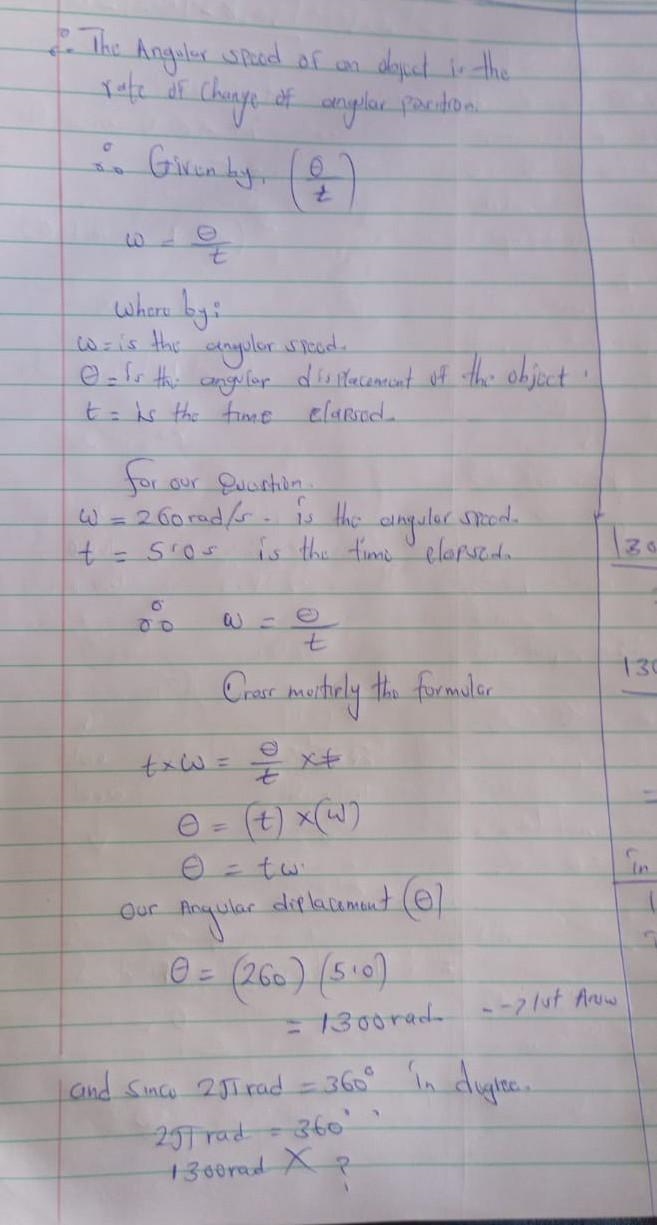 2. The Angular speed of an object is the
rate of change of angular position.
∴ Given by, (θ/t)
ω = θ/t
where by:
ω = is the angular speed.
θ = is the angular displacement of the object.
t = is the time elapsed.
for our Question.
ω = 260 rad/s - is the angular speed.
t = 5.0 s is the time elapsed.
∴ ω = θ/t
Cross multiply the formular
t×ω = θ/t ×t
θ = (t) ×(ω)
θ = tω.
Our Angular diplacement (θ)
θ = (260) (5.0)
= 1300 rad --> 1st Answ
and since 2π rad = 360° in degree.
2π rad = 360°
1300 rad X ?
130
130
=
in
1